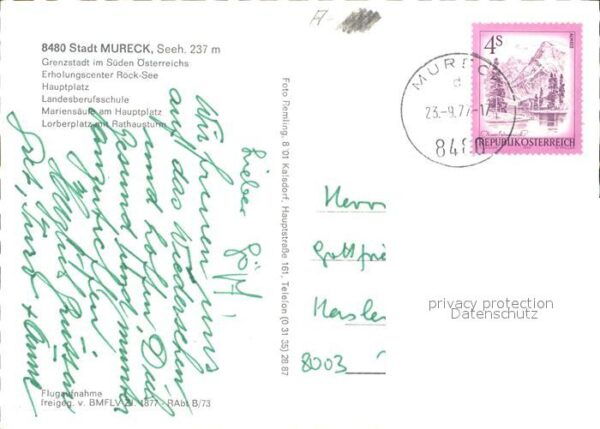 8480 Stadt MURECK, Seeh. 237 m
Grenzstadt im Süden Österreichs
Erholungscenter Röck-See
Hauptplatz
Landesberufsschule
Mariensäule am Hauptplatz
Lorberplatz mit Rathausturm
Lieber
Wir freuen uns
auf das Wiedersehen
und hoffen, Dich
gesund und munter
anzutreffen
Grüßen
Flugaufnahme
freigeg. v. BMFLV-Zl. 1877 - RAbt B/73
Foto Remling, 8401 Kalsdorf, Hauptstraße 161, Telefon (0 31 35) 28 87
MURECK
d
23.-9.77-17
8480
4S
REPUBLIK ÖSTERREICH
Herrn
Gottfrie
8003
privacy protection
Datenschutz